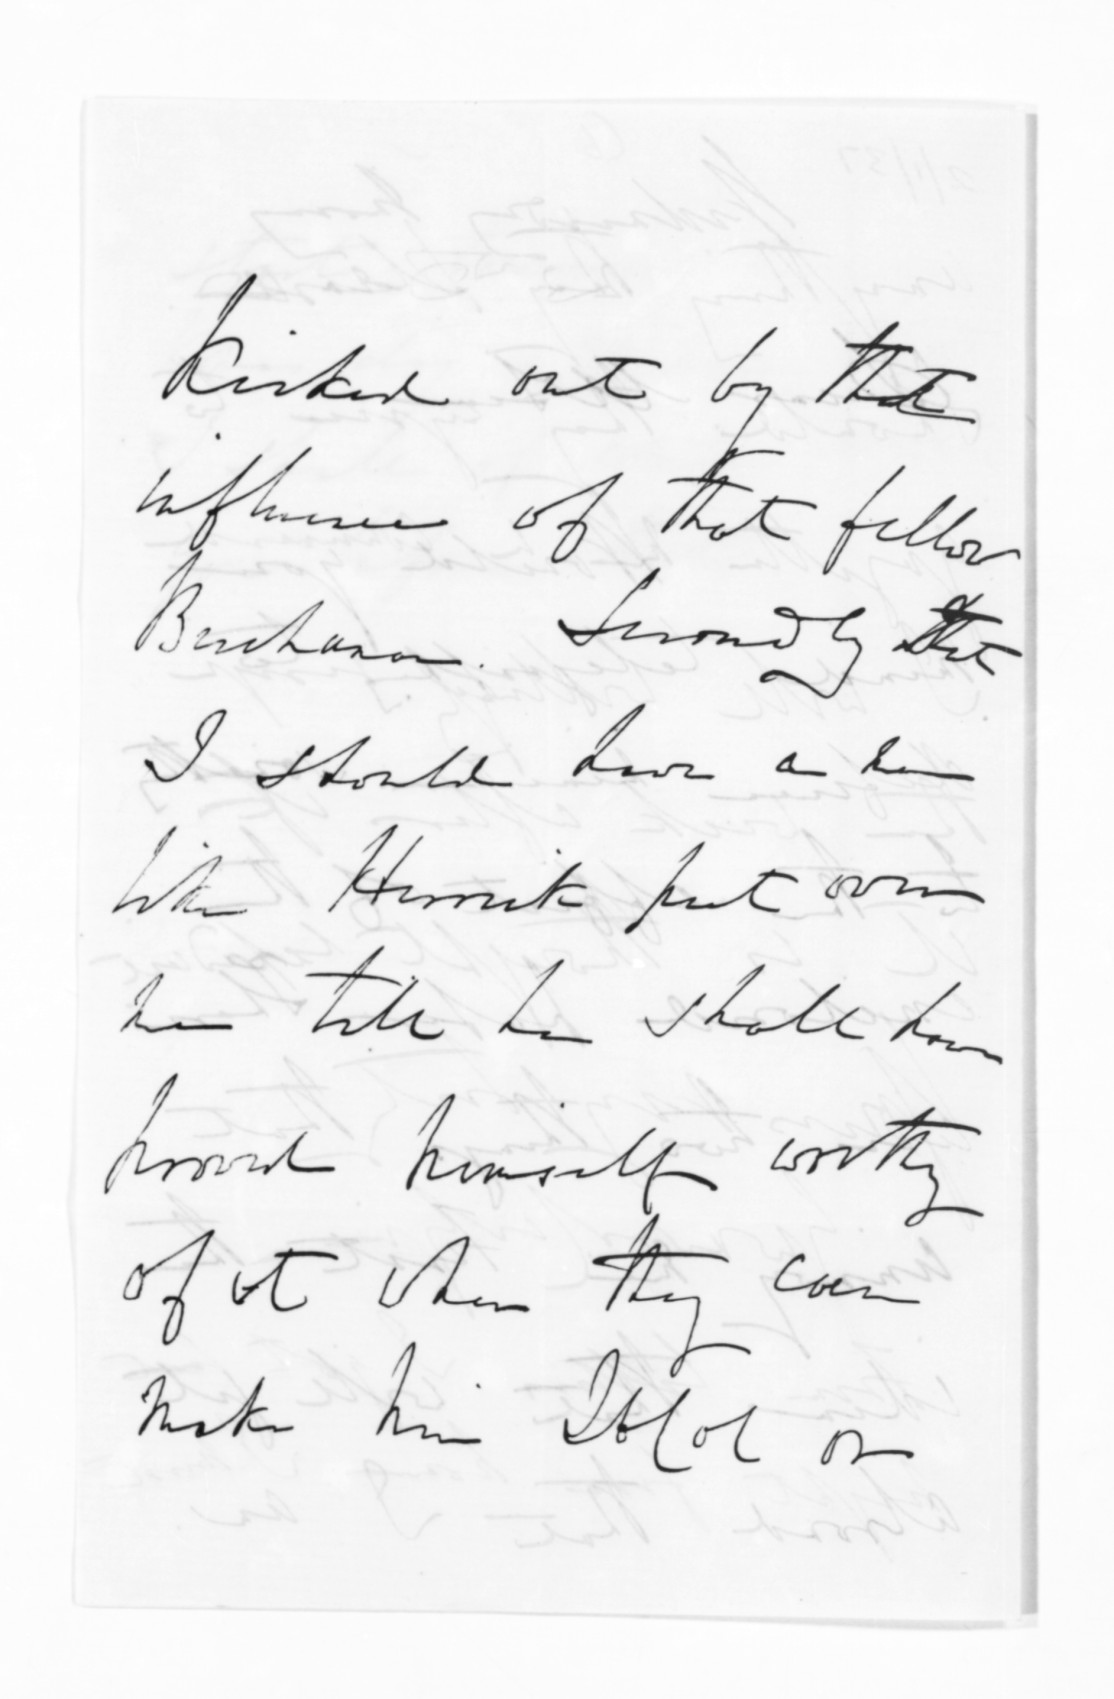 Kicked out by that
influence of that fellow
Buchanan. Secondly that
I should have a man
like Herrick put over
me till he shall have
proved himself worthy
of it when they can
make him Lt Col or